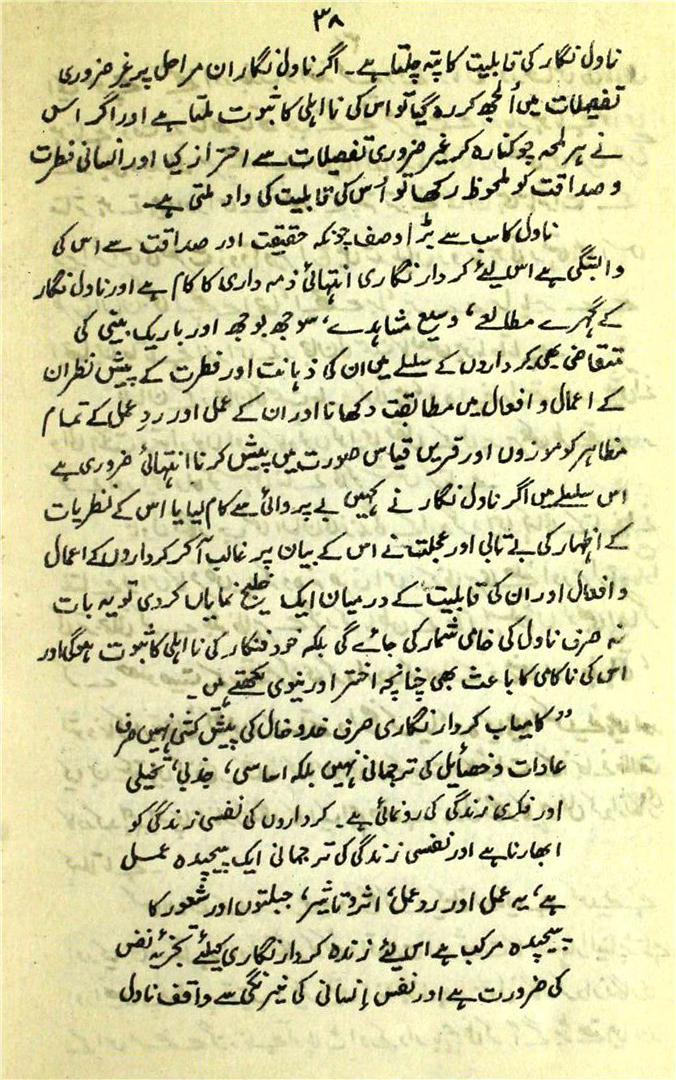 ۳۸
ناول نگار کی قابلیت کا پتہ چلتا ہے۔ اگر ناول نگار ان مراحل پر غیر ضروری
تفصیلات میں اُلجھ کر رہ گیا تو اس کی نااہلی کا ثبوت ملتا ہے اور اگر اس
نے ہر لمحہ چوکنا رہ کر غیر ضروری تفصیلات سے احتراز کیا اور انسانی فطرت
و صداقت کو ملحوظ رکھا تو اُس کی قابلیت کی داد ملتی ہے۔
ناول کا سب سے بڑا وصف چونکہ حقیقت اور صداقت سے اس کی
وابستگی ہے اس لیٔے کردار نگاری انتہائی ذمہ داری کا کام ہے اور ناول نگار
کے گہرے مطالعے، وسیع مشاہدے، سوجھ بوجھ اور باریک بینی کی
متقاضی بھی کرداروں کے سلسلے میں ان کی ذہانت اور فطرت کے پیش نظر ان
کے اعمال و افعال میں مطابقت دکھانا اور ان کے عمل اور ردِ عمل کے تمام
مظاہر کو موزوں اور قرین قیاس صورت میں پیش کرنا انتہائی ضروری ہے
اس سلسلے میں اگر ناول نگار نے کہیں بے پروائی سے کام لیا یا اس کے نظریات
کے اظہار کی بے تابی اور عجلت نے اس کے بیان پر غالب آ کر کرداروں کے اعمال
و افعال اور ان کی قابلیت کے درمیان ایک خلیج نمایاں کردی تو یہ بات
نہ صرف ناول کی خامی شمار کی جائے گی بلکہ خود فنکار کی نااہلی کا ثبوت ہوگی اور
اس کی ناکامی کا باعث بھی چنانچہ اختر اورینوی لکھتے ہیں۔
”کامیاب کردار نگاری صرف خدوخال کی پیش کشی نہیں صرف
عادات و خصائیل کی ترجمانی نہیں بلکہ اساسی، جذبی، تخیلی
اور فکری زندگی کی رونمائی ہے۔ کرداروں کی نفسی زندگی کو
ابھارنا ہے اور نفسی زندگی کی ترجمانی ایک پیچیدہ عمل
ہے، یہ عمل اور ردعمل، اثر و تاثیر، جبلتوں اور شعور کا
پیچیدہ مرکب ہے اس لیٔے زندہ کردار نگاری کیلئے تجزیۂ نفس
کی ضرورت ہے اور نفس اِنسانی کی نیرنگی سے واقف ناول